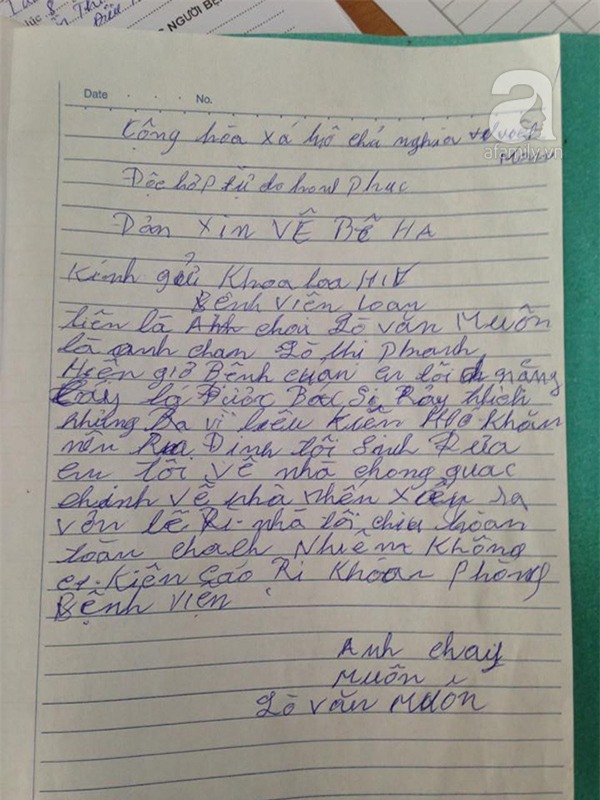 NGƯỜI BỆ
Date No.
Cộng hòa xá hộ chủ nghĩa
Độc hợp tự do hanh phuc
Đản XIN VỀ BỀ HA
Kính gửi Khoa loa HIV
Bệnh viên loan
tiên là Anh chai Lò văn Muôn
là anh chan Lò thi phanh
Hiện giờ Bệnh cuan em tôi nặng
là Được Bác Sĩ Rảy thich
nhưng Ra vì liêu Kiên Khăn
nên Đinh tôi Sinh Đưa
em tôi về nhà chong quac
chinh về nhà nhên xiêu ra
vơn lê Ri nhà tôi chiu hoan
toàn chach Nhiềm Không
Kiên Cáo Ri Khoan phòng
Bệnh Viện
Anh chay
Muôn
Lò văn Muôn
afamily.vn